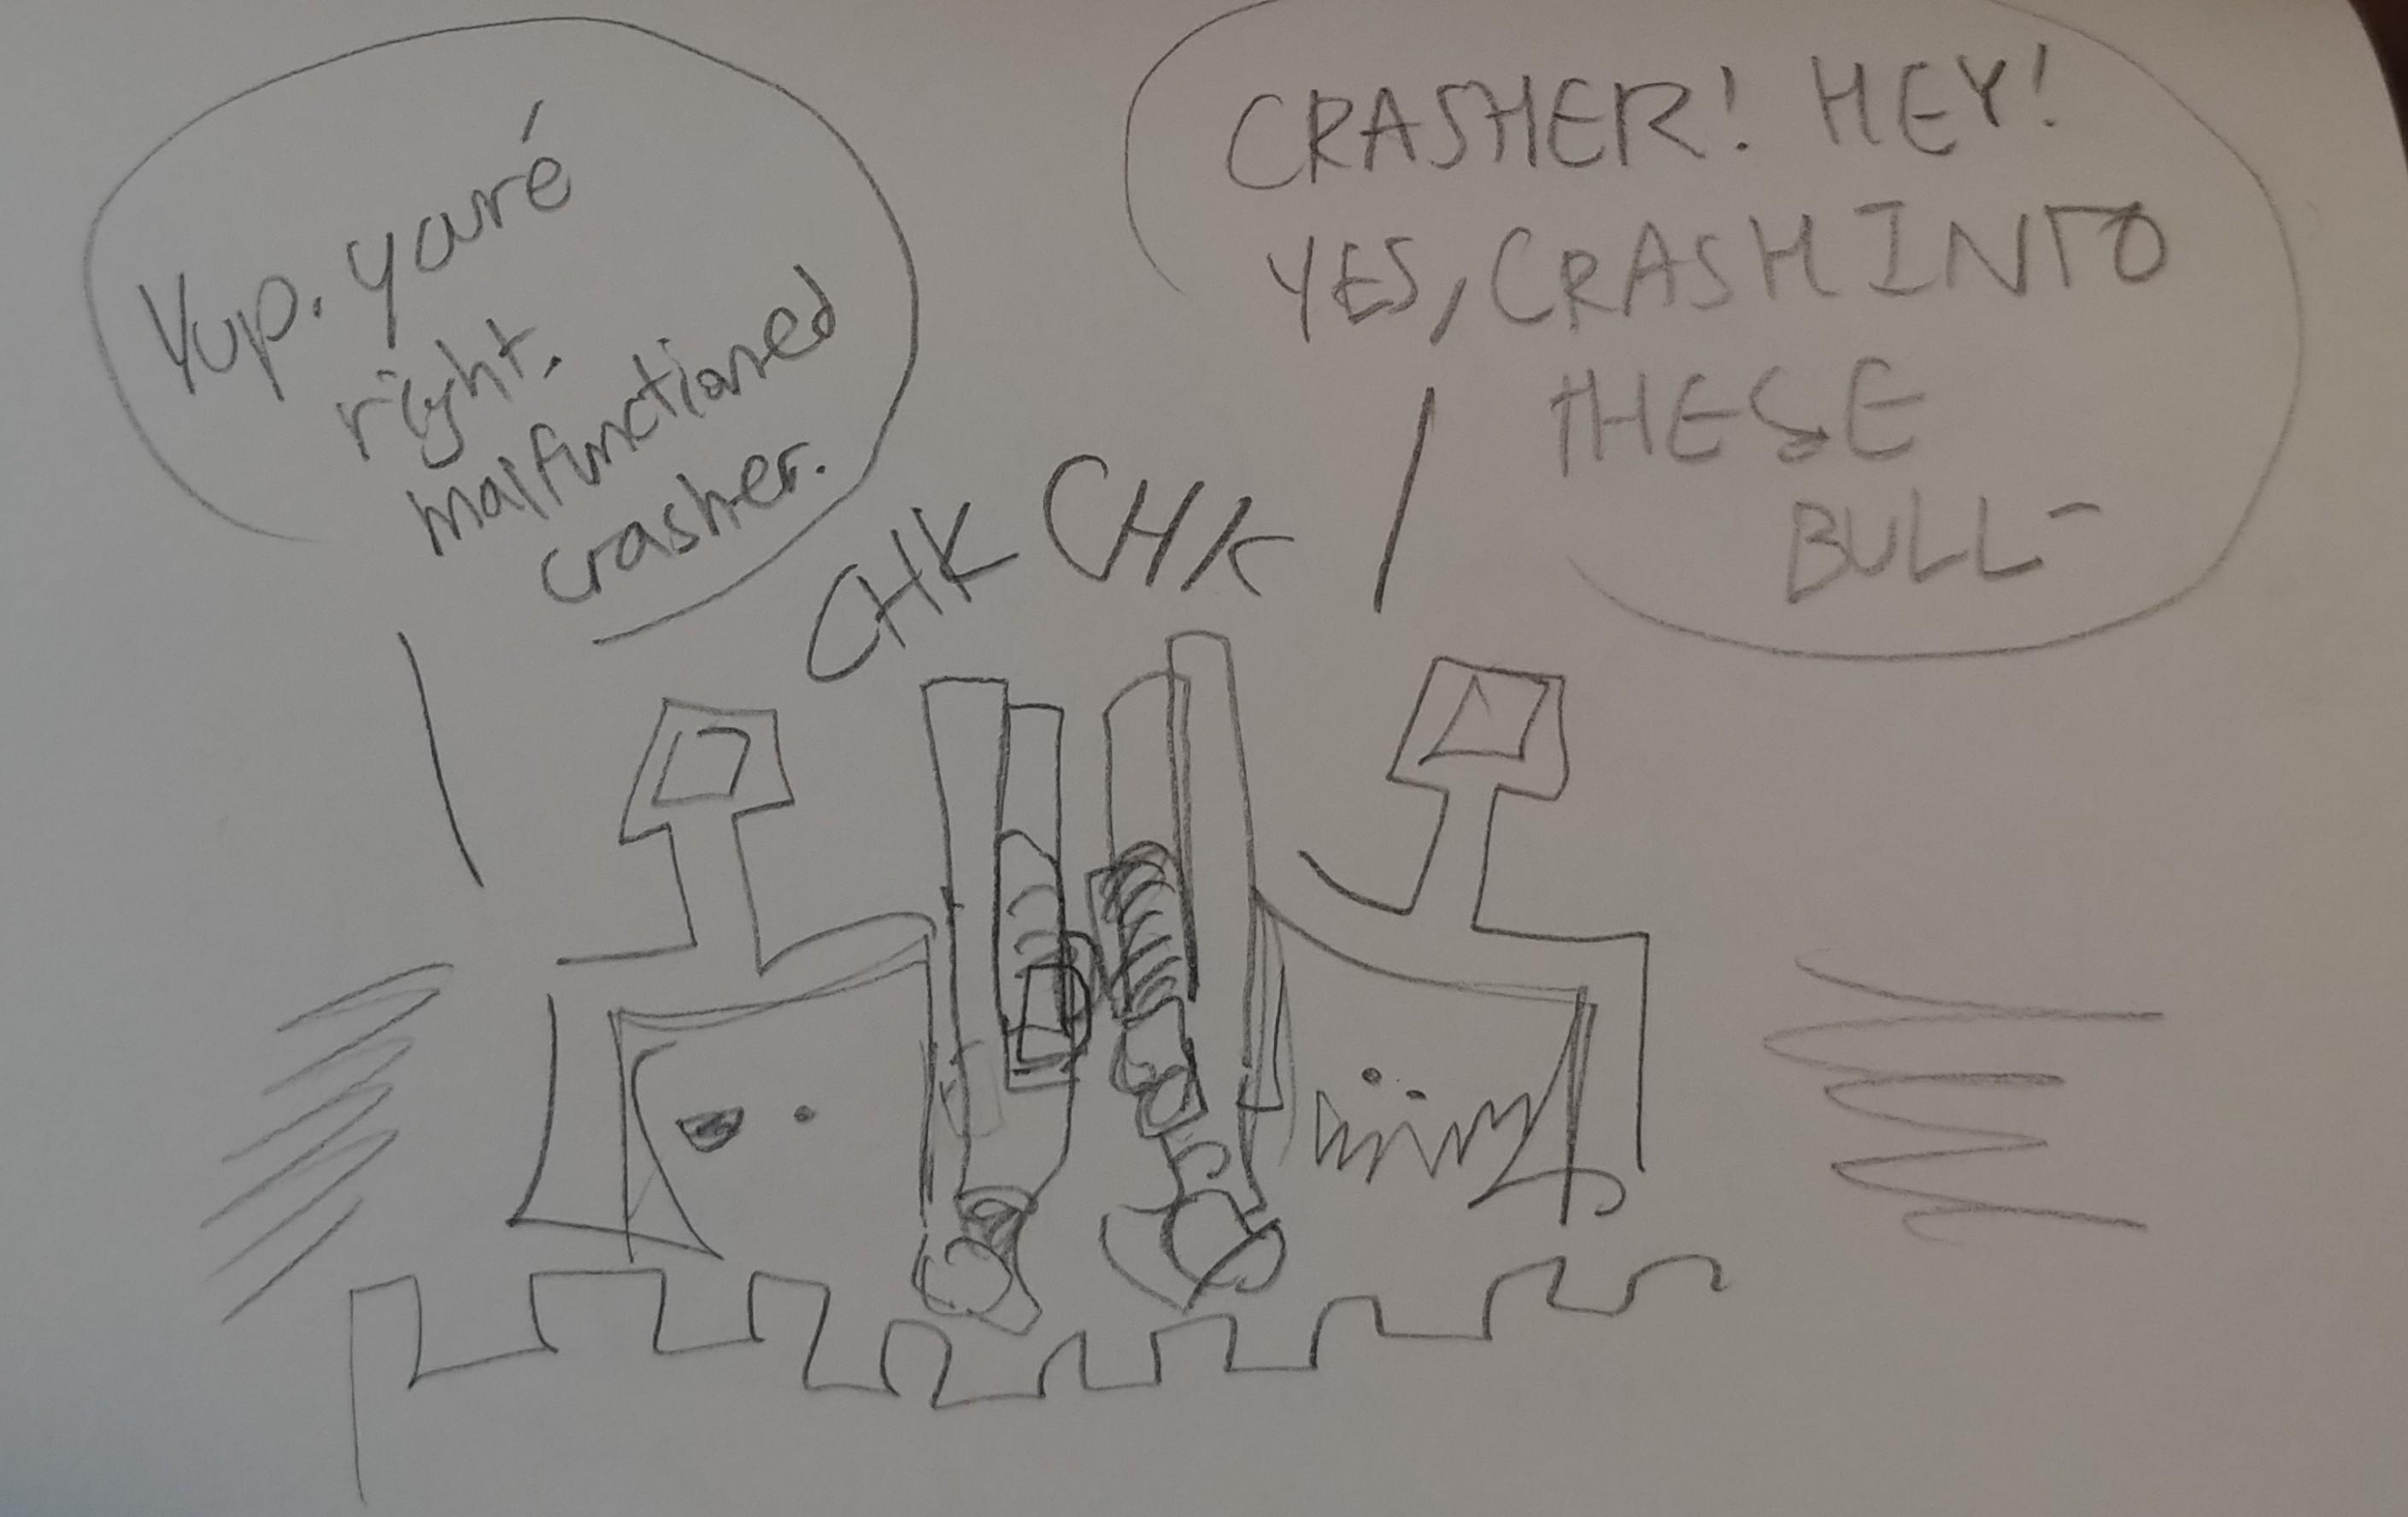 Yup. you'ré
right.
malfunctioned
crasher.
CRASHER! HEY!
YES, CRASH INTO
THESE
BULL-
CHK CHK